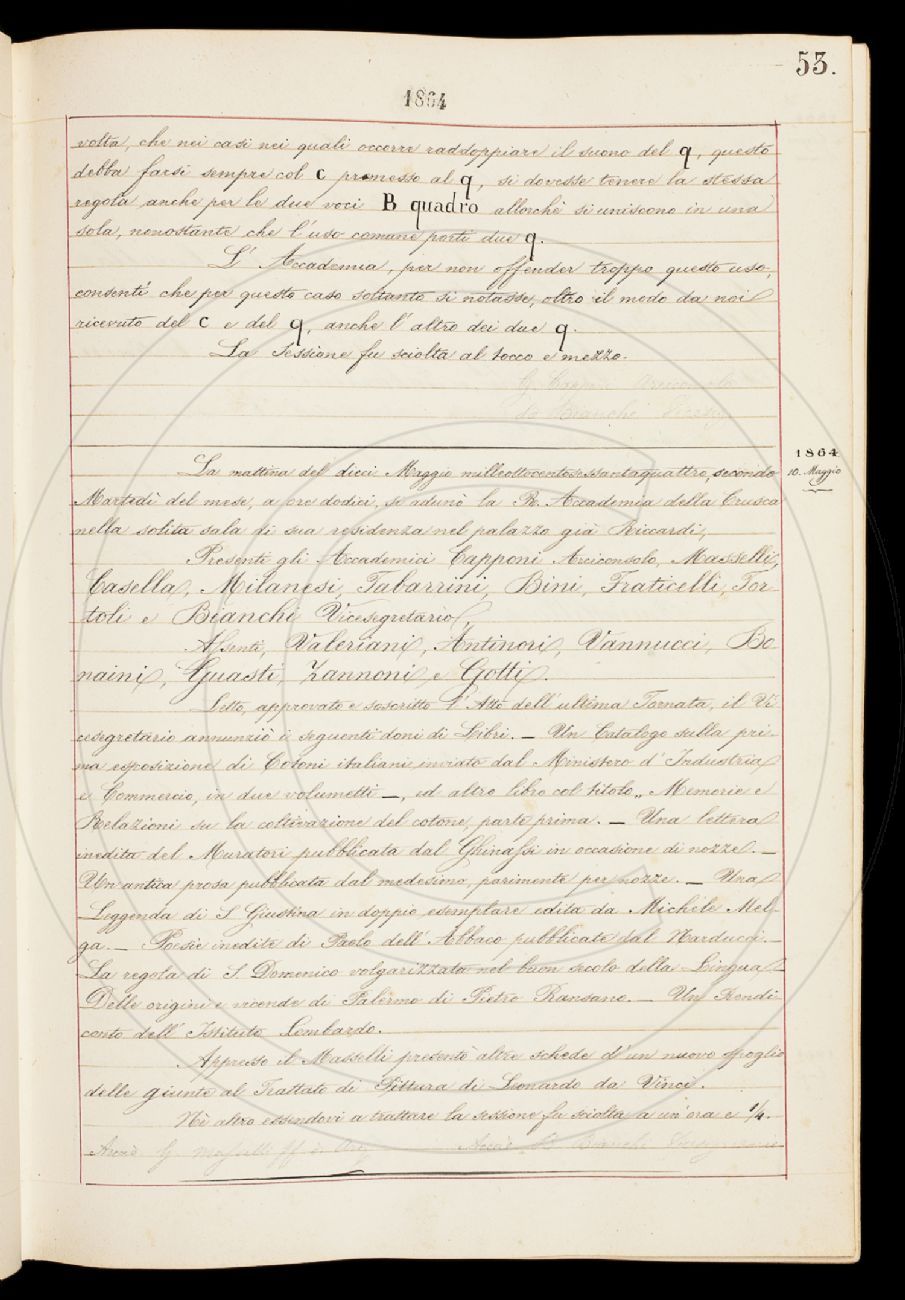 53.
1864
volta, che nei casi nei quali occorre raddoppiare il suono del q, questo
debba farsi sempre col c premesso al q, si dovesse tenere la stessa
regola anche per le due voci B quadro allorchè si uniscono in una
sola, nonostante che l'uso comune porti due q.
L'Accademia, per non offender troppo questo uso,
consentì che per questo caso soltanto si notasse, oltre il modo da noi
ricevuto del c e del q, anche l'altro dei due q.
La Sessione fu sciolta al tocco e mezzo.
G. Capponi Arciconsolo
Bianchi
1864
10. Maggio
La mattina del dieci Maggio milleottocentosessantaquattro, secondo
Martedì del mese, a ore dodici, si adunò la R. Accademia della Crusca
nella solita sala di sua residenza nel palazzo già Riccardi,
Presenti gli Accademici Capponi Arciconsolo, Masselli,
Casella, Milanesi, Tabarrini, Bini, Fraticelli, Tor-
toli e Bianchi Vicesegretario,
Assenti, Valeriani, Antinori, Vannucci, Bo-
naini, Guasti, Zannoni, e Gotti.
Letto, approvato e soscritto l'Atto dell'ultima Tornata, il Vi-
cesegretario annunziò i seguenti doni di Libri. — Un Catalogo sulla pri-
ma esposizione di Cotoni italiani inviato dal Ministero d'Industria
e Commercio, in due volumetti —, ed altro libro col titolo „ Memorie e
Relazioni su la coltivazione del cotone, parte prima. — Una lettera
inedita del Muratori pubblicata dal Ghinassi in occasione di nozze. —
Un'antica prosa pubblicata dal medesimo, parimente per nozze. — Una
Leggenda di S Giustina in doppio esemplare edita da Michele Mel-
ga. — Poesie inedite di Paolo dell'Abbaco pubblicate dal Narducci. —
La regola di S Domenico volgarizzata nel buon secolo della Lingua —
Delle origini e vicende di Palermo di Pietro Ransano. — Un Rendi-
conto dell'Istituto Lombardo.
Appresso il Masselli presentò altre schede d'un nuovo spoglio
delle giunte al Trattato di Pittura di Leonardo da Vinci.
Nè altro essendovi a trattare la sessione fu sciolta a un'ora e 1/4.
Bianchi